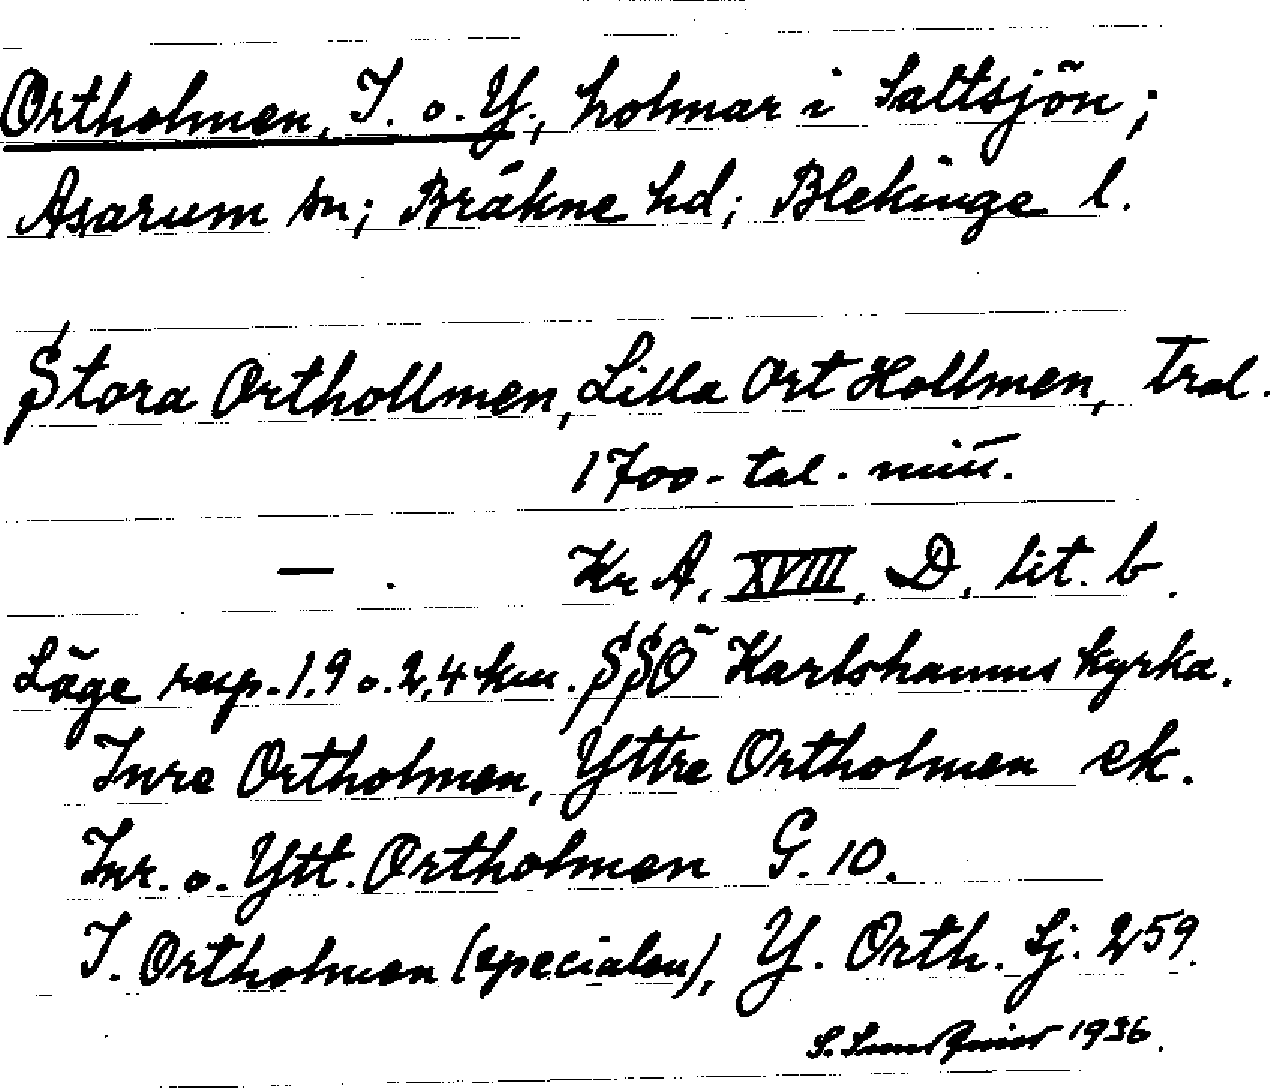 Ortholmen, I. o. Y., holmar i Saltsjön;
Asarum sn; Bräkne hd; Blekinge l.
Stora Orthollmen, Lilla Ort Hollmen, trol.
1700-tal. mitt.
— . Kr A, XVIII, D, lit. b.
Läge resp. 1,9 o. 2,4 km. SSÖ Karlshamns kyrka.
Inre Ortholmen, Yttre Ortholmen ek.
Inr. o. Ytt. Ortholmen G. 10.
I. Ortholmen (specialen), Y. Orth. Sj. 259.
S. 1936.